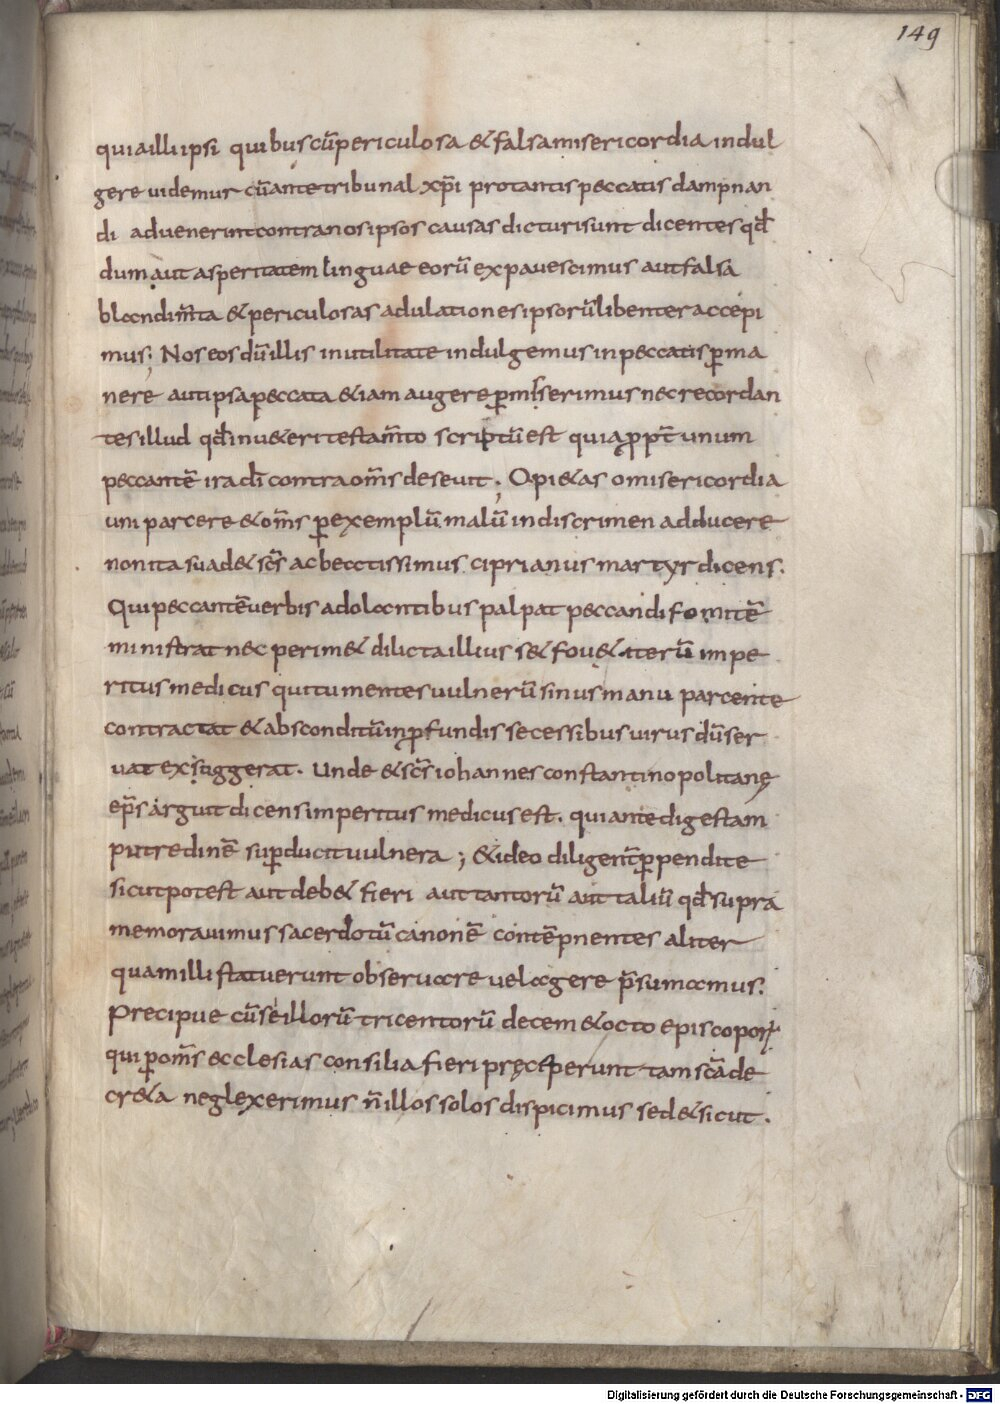 149
quia illi ipsi quibus cū periculosa & falsa misericordia indul
gere uidemur cū ante tribunal xp̄i pro tantis peccatis dampnan
di aduenerint contra nos ipsos causas dicturi sunt dicentes qd̄
dum aut asperitatem linguae eorū expauescimus aut falsa
blandim̄ta & periculosas adulationes ipsorū libenter accepi
mus; Nos eos dū illis inutilitate indulgemus in peccatis ꝑma
nere aut ipsa peccata &iam augere ꝑmiserimus nec recordan
tes illud qd̄ in u&eri testam̄to scriptū est quia ꝓpt̄ unum
peccantē ira dī contra om̄s deseuit. O pi&as o misericordia
uni parcere & om̄s ꝑ exemplū malū in discrimen adducere
non ita suad& sc̄s ac beatissimus ciprianus martyr dicens.
Qui peccantē uerbis adolantibus palpat peccandi fomitē
ministrat nec perim& dilicta illius s& fou& iterū impe
ritus medicus qui tumentes uulnerū sinus manu parcente
contractat & absconditū in ꝓfundis secessibus uirus dū ser
uat exsuggerat. Unde & sc̄s iohannes constantinopolitanę
ep̄s arguit dicens imperitus medicus est. qui ante digestam
putredinē suꝑducit uulnera; & ideo diligent̄ ꝑpendite
sicut potest aut deb& fieri aut tantorū aut taliū qd̄ supra
memorauimus sacerdotū canonē contēpnentes aliter
quam illi statuerunt obseruare uel agere p̄sumamus.
Precipue cū se illorū tricentorū decem & octo episcoporꝝ
qui ꝑ om̄s ecclesias consilia fieri pręceperunt tam sc̄a de
cr&a neglexerimus n̄ illos solos dispicimus sed & sicut.
Digitalisierung gefördert durch die Deutsche Forschungsgemeinschaft - DFG